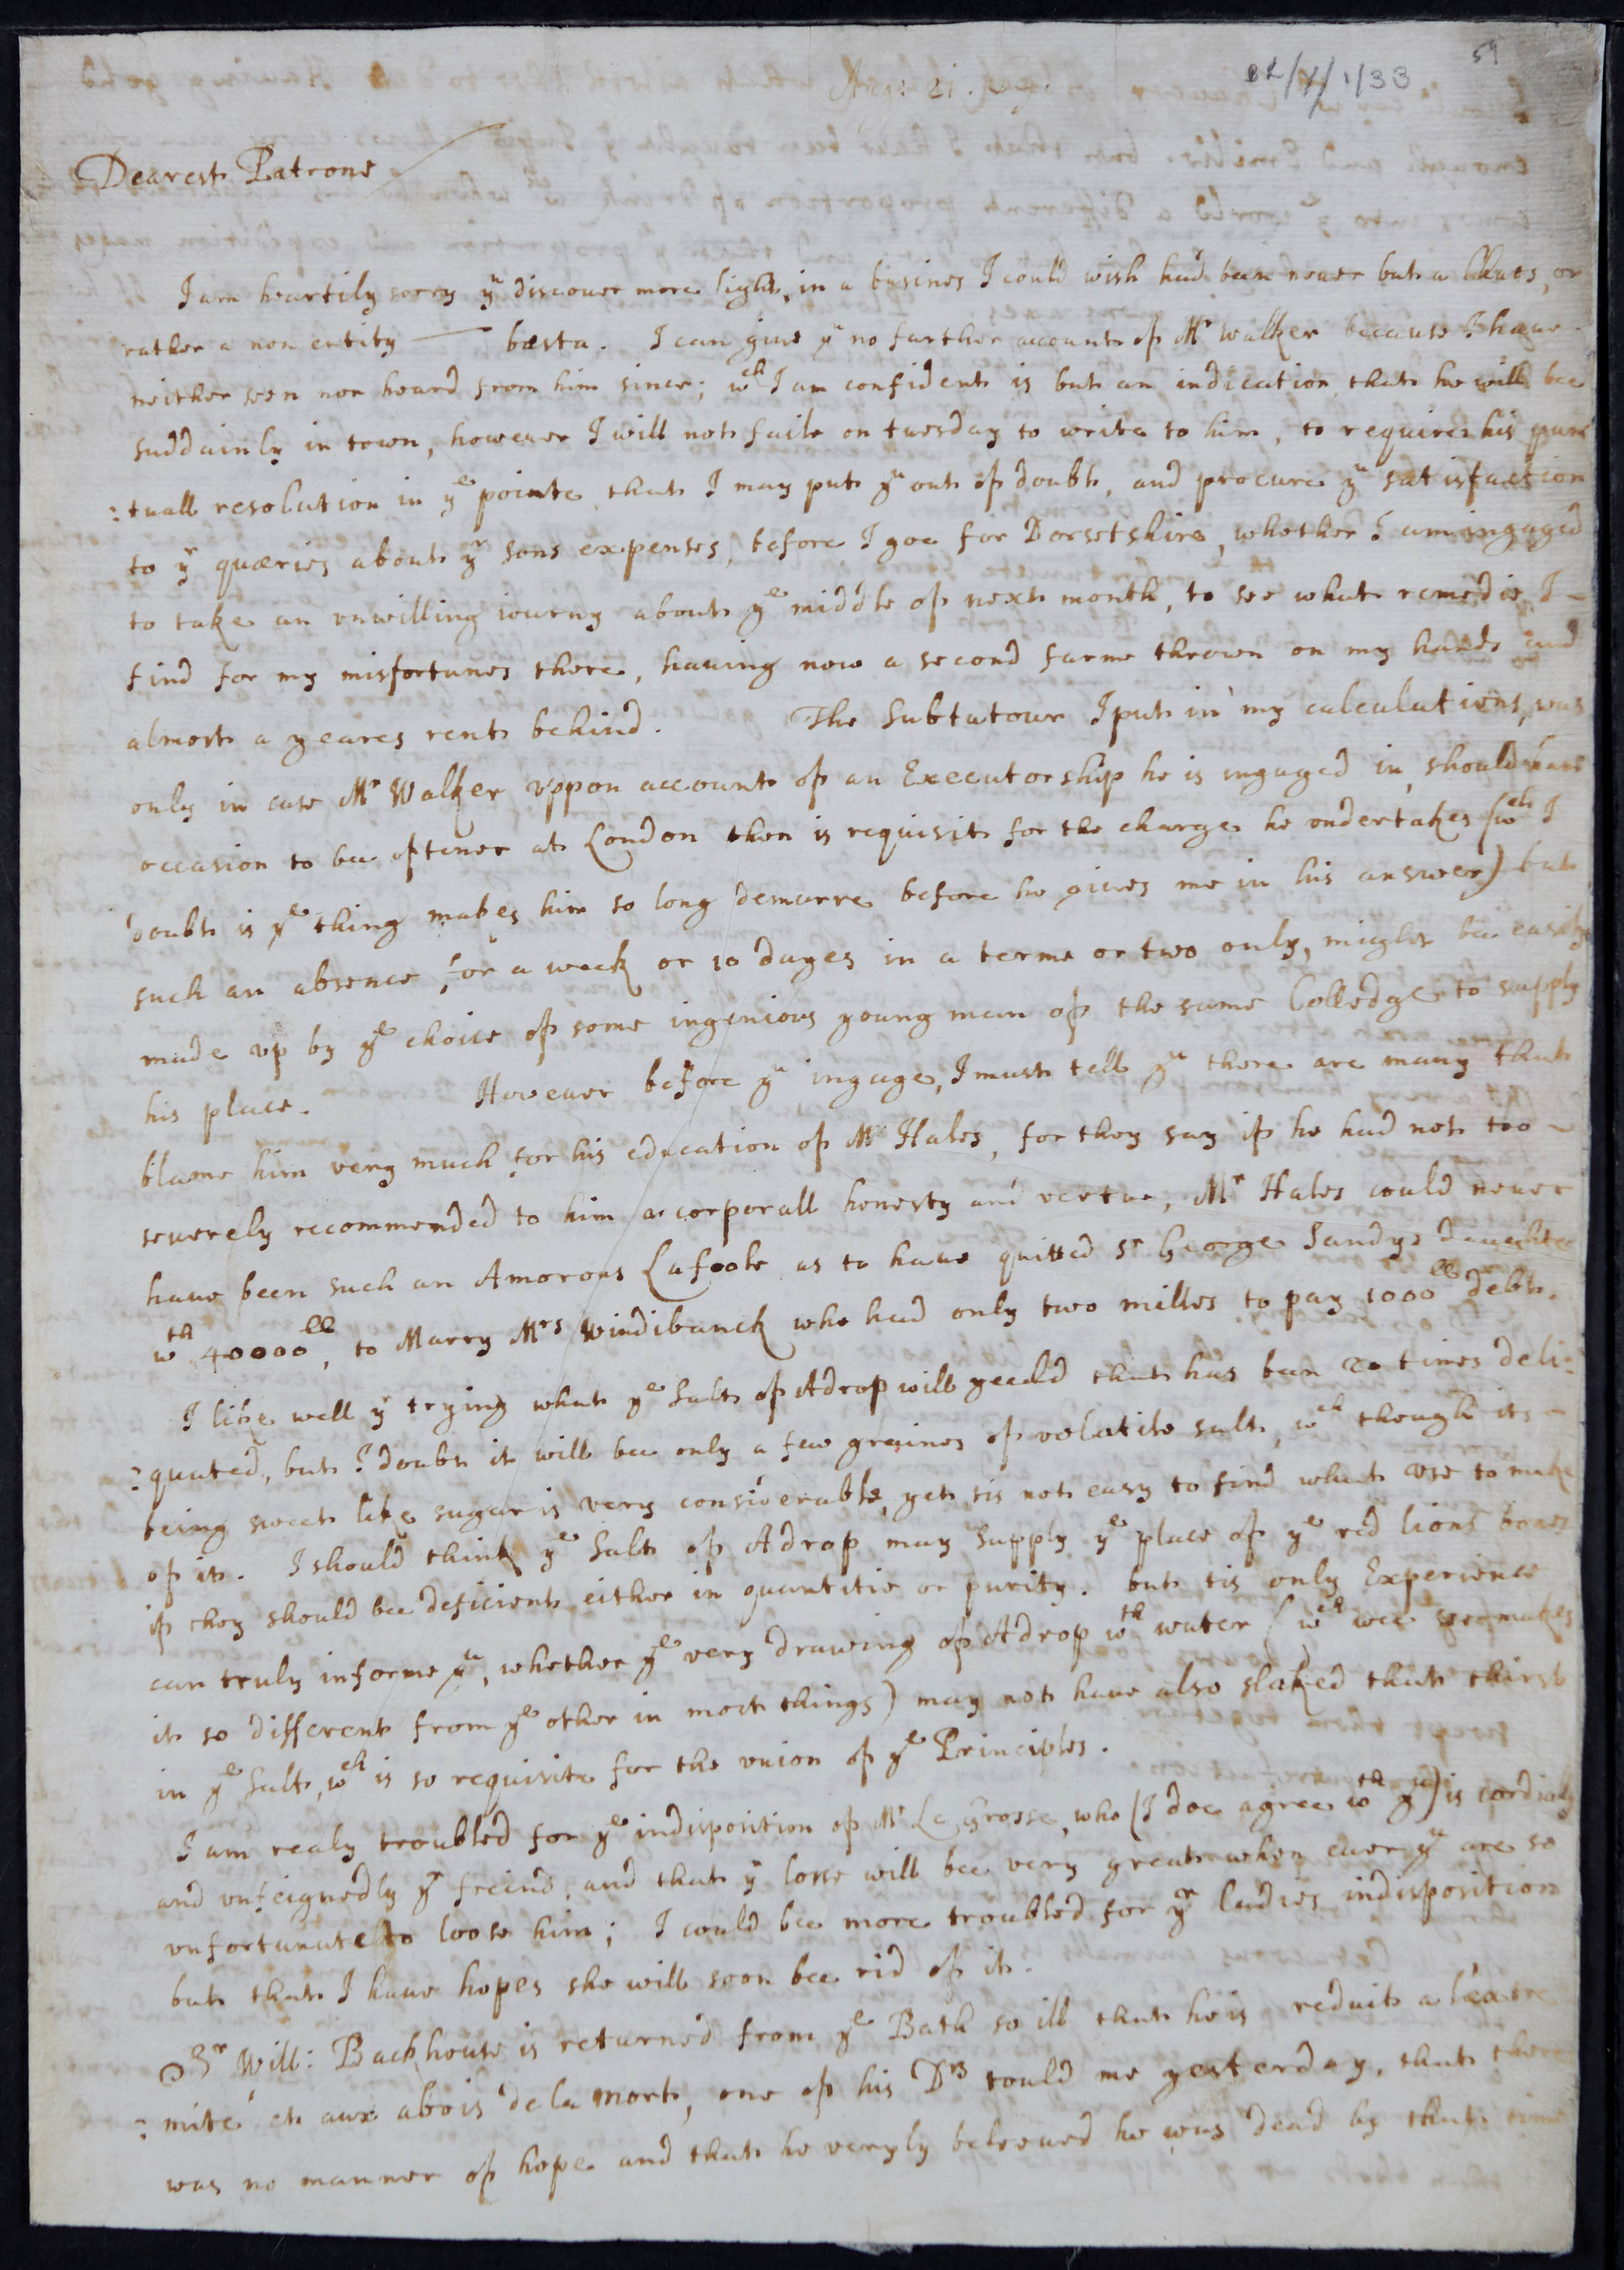 59
Aug: 21. 1669.
Dearest Patrone
I am heartily sorry yu discover more light, in a busines I could wish had been neuer but a Chaos, or
rather a non entity — basta. I can giue yu no farther account of Mr Walker because I haue
neither seen nor heard from him since; wch I am confident is but an indication that he will bee
suddainly in town, howeuer I will not faile on tuesday to write to him, to require his punc
:tuall resolution in ye pointe that I may put yu out of doubt, and procure yu satisfaction
to yr quæries about yr sons expenses, before I goe for Dorsetshire, whether I am ingaged
to take an vnwilling iourny about ye middle of next month, to see what remedie I
find for my misfortunes there, hauing now a second farme thrown on my hands and
almost a yeares rent behind. The Subtutour I put in my calculations, was
only in case Mr Walker vppon account of an Executorship he is ingaged in, should haue
occasion to bee oftener at London then is requisit for the charge he undertakes (wch I
doubt is ye thing makes him so long demurre before he giues me in his answer) but
such an absence, for a week or 10 dayes in a terme or two only, might bee easily
made vp by ye choice of some ingenious young man of the same Colledge to supply
his place. Howeuer before yu ingage, I must tell yu there are many that
blame him very much for his education of Mr Hales, for they say if he had not too
seuerely recommended to him a corporall honesty and vertue, Mr Hales could neuer
haue been such an Amorous Lafoole as to haue quitted Sr George Sandys Daughter
wth 40000ll, to Marry Mrs Windibanck who had only two milles to pay 1000ll debt.
I like well yr trying what ye Salt of Adrop will yeeld that has been 20 times deli:
:quated, but I doubt it will bee only a few graines of volatile salt, wch though its
being sweet like sugar is very considerable, yet tis not easy to find what vse to make
of it. I should think ye Salt of Adrop may supply ye place of ye red lions bones
if they should bee deficient either in quantitie or purity. but tis only Experience
can truly informe yu, whether ye very drawing of Adrop wth water (wch wee see makes
it so different from ye other in most things) may not haue also slaked that thirst
in ye Salt, wch is so requisite for the vnion of ye Principles.
I am realy troubled for ye indisposition of Mr Le Grosse, who (I doe agree wth yu) is cordialy
and vnfeignedly yr freind, and that yr losse will bee very great when euer yu are so
vnfortunate to loose him; I could bee more troubled for yr ladies indisposition
but that I haue hopes she will soon bee rid of it.
Sr Will: Backhouse is returned from ye Bath so ill that he is reduit a l'extre
:mité et aux abois de la mort, one of his Drs tould me yesterday, that there
was no manner of hope and that he veryly beleeued he was dead by that time